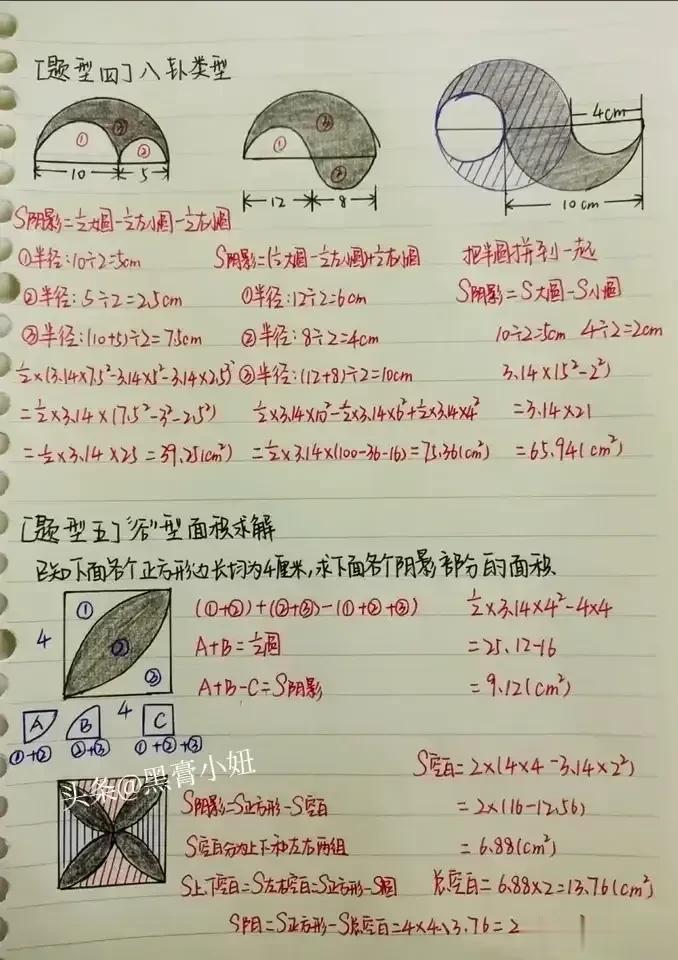 [题型四]八卦类型
① ③ ②
10 5
① ③ ②
12 8
4cm
10cm
S阴影=½大圆-½左小圆-½右小圆
①半径:10÷2=5cm
②半径:5÷2=2.5cm
③半径:(10+5)÷2=7.5cm
½×(3.14×7.5²-3.14×5²-3.14×2.5²)
=½×3.14×(7.5²-3²-2.5²)
=½×3.14×25=39.25(cm²)
S阴影=(½大圆-½左小圆)+½右小圆
①半径:12÷2=6cm
②半径:8÷2=4cm
③半径:(12+8)÷2=10cm
½×3.14×10²-½×3.14×6²+½×3.14×4²
=½×3.14×(100-36-16)=75.36(cm²)
把半圆拼到一起
S阴影=S大圆-S小圆
10÷2=5cm 4÷2=2cm
3.14×(5²-2²)
=3.14×21
=65.94(cm²)
[题型五]"谷"型面积求解
已知下面各个正方形边长均为4厘米,求下面各个阴影部分的面积.
① ② ③
4
4
A B C
①+② ②+③ ①+②+③
(①+②)+(②+③)-(①+②+③)
A+B=½圆
A+B-C=S阴影
½×3.14×4²-4×4
=25.12-16
=9.12(cm²)
头条@黑膏小妞
S阴影=S正方形-S空白
S空白分为上下和左右两组
S上下空白=S左右空白=S正方形-S圆
S空白=2×(4×4-3.14×2²)
=2×(16-12.56)
=6.88(cm²)
总空白=6.88×2=13.76(cm²)
S阴=S正方形-S总空白=4×4-13.76=2